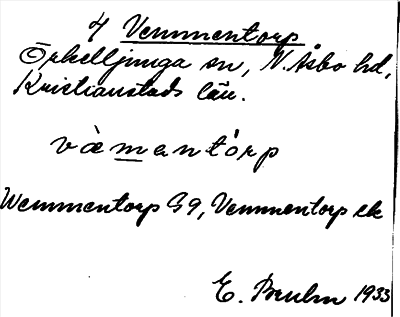 4 Vemmentorp
Örkelljunga sn, N. Åsbo hd,
Kristianstads län.
vä̀mantòrp
Wemmentorp G9, Vemmentorp ek
E. Bruhn 1933